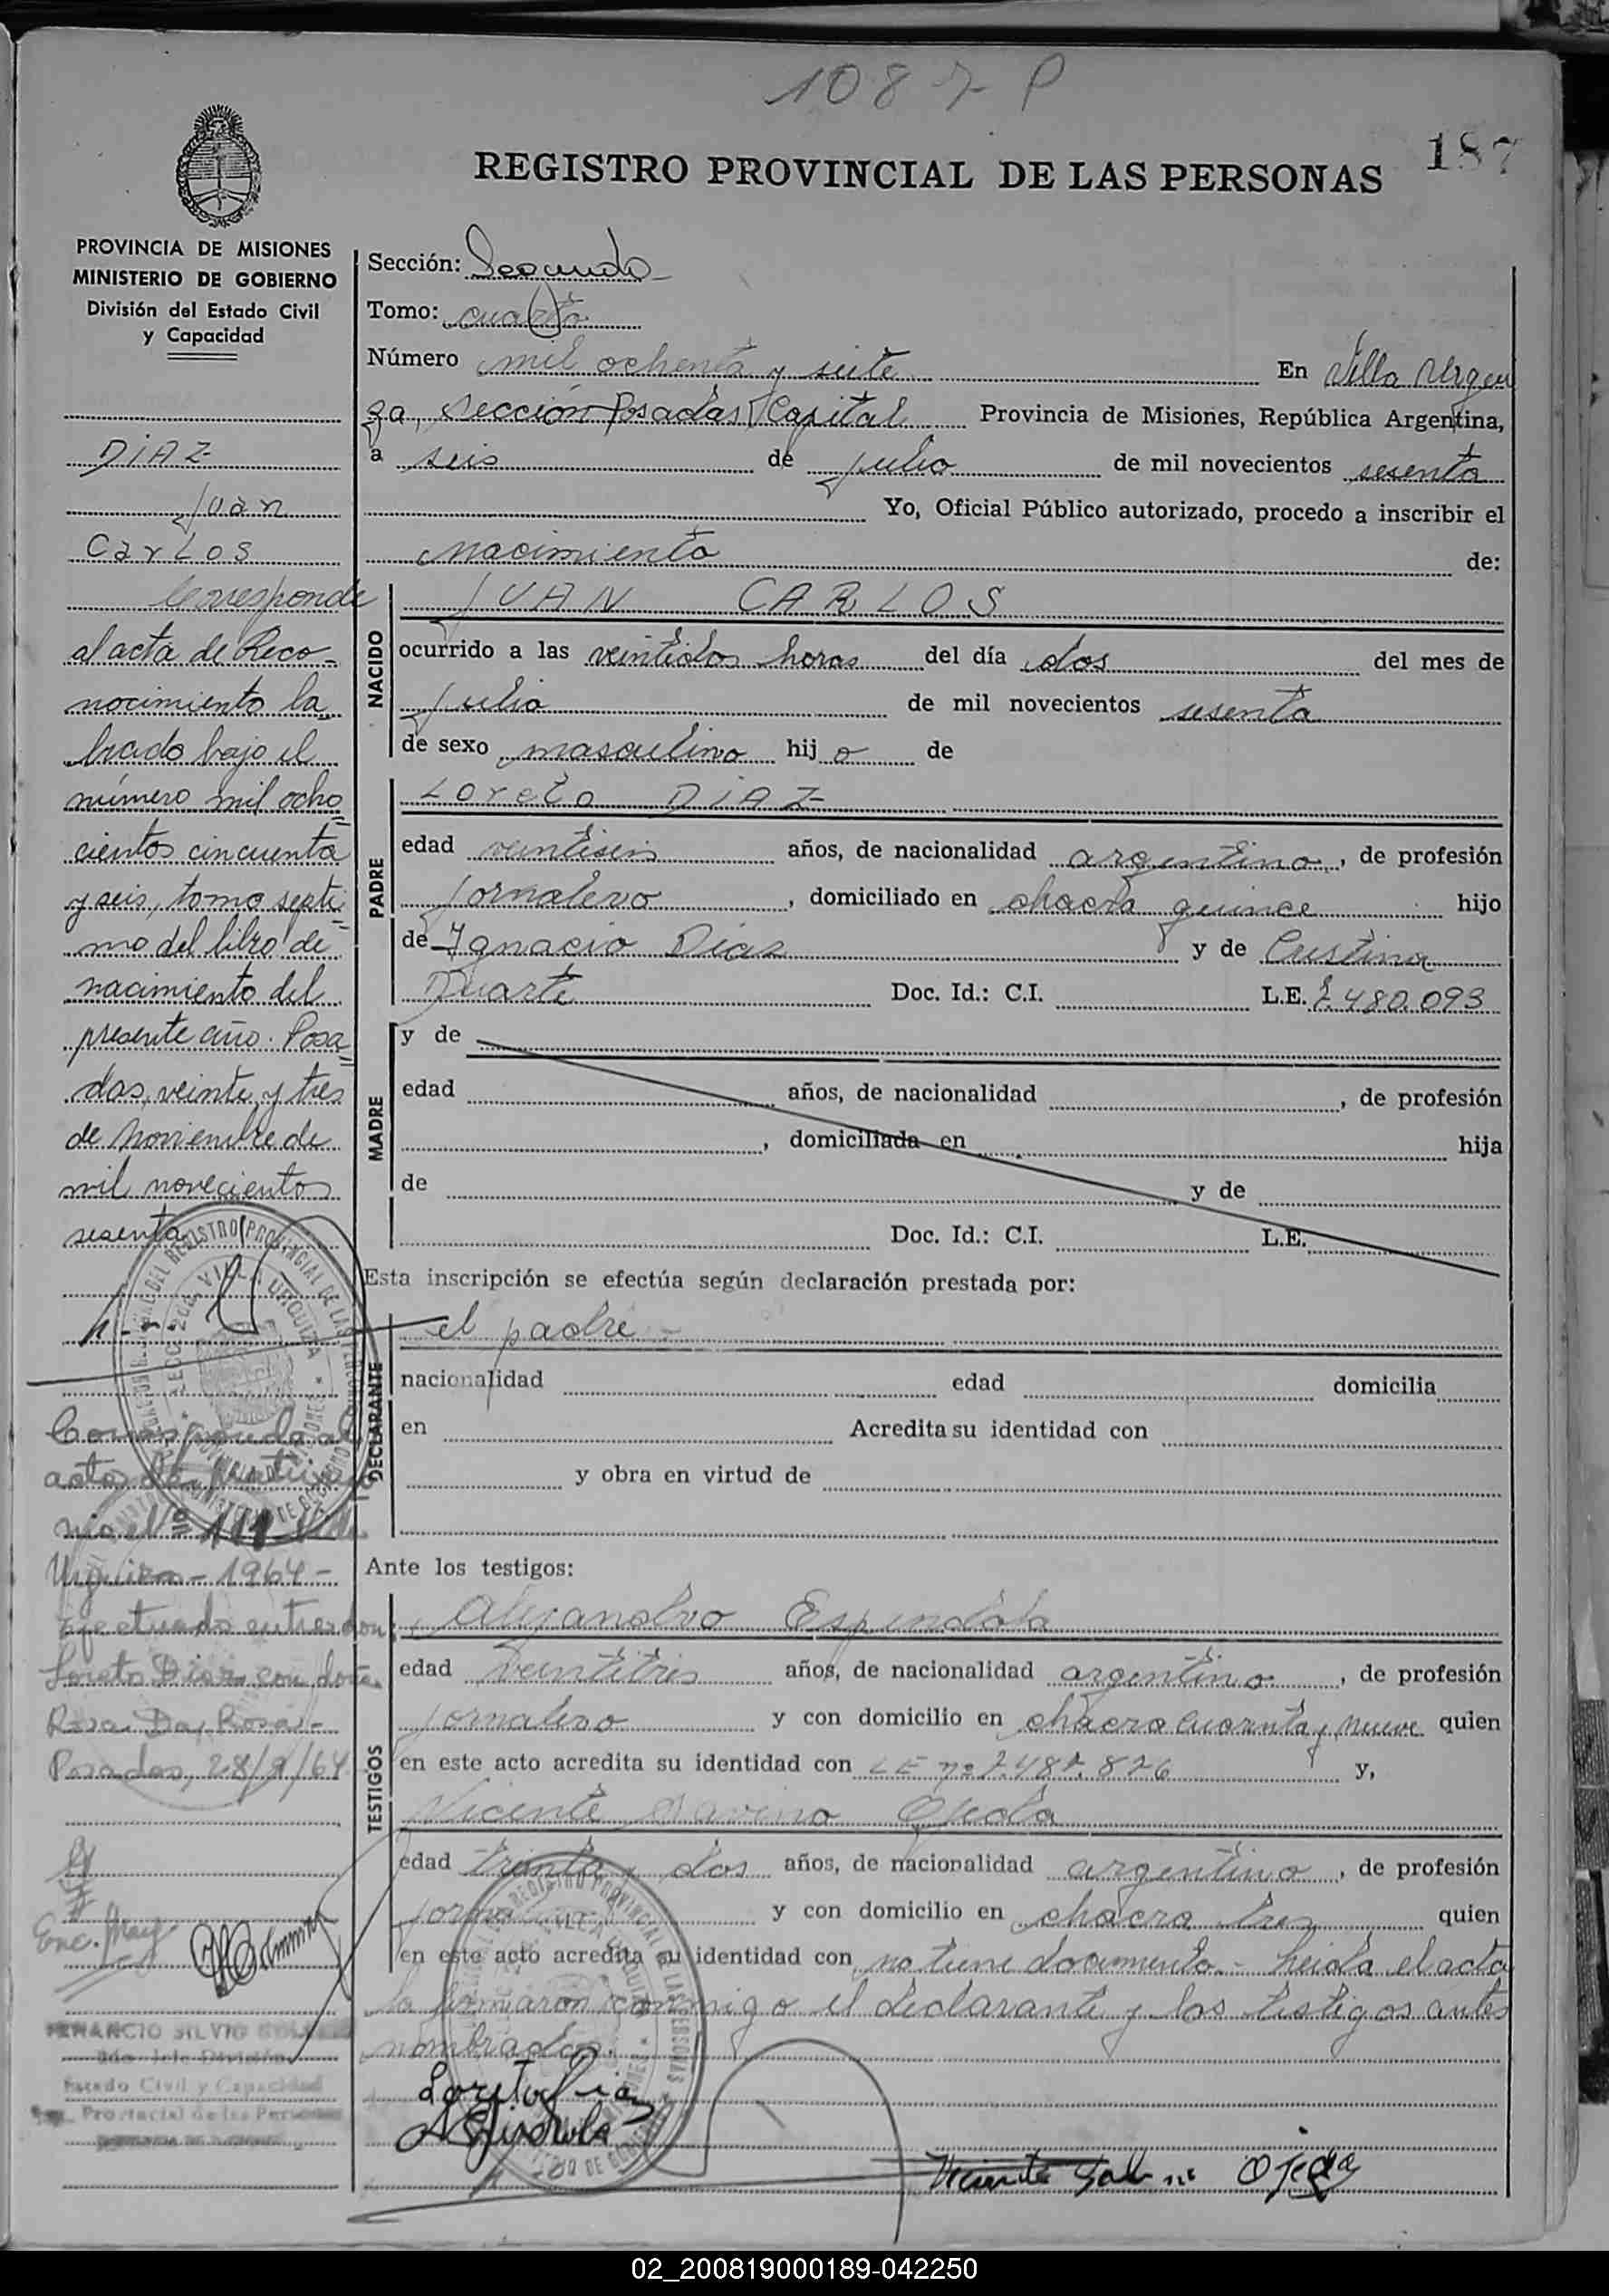 1087 P
187
REGISTRO PROVINCIAL DE LAS PERSONAS
PROVINCIA DE MISIONES
MINISTERIO DE GOBIERNO
División del Estado Civil
y Capacidad
DIAZ
Juan
Carlos
Corresponde
al acta de Reco-
nocimiento la
brado bajo el
número mil ocho
cientos cincuenta
y seis, tomo septi
mo del libro de
nacimiento del
presente año. Posa
das, veinte y tres
de Noviembre de
mil novecientos
sesenta
Corresponde al
acta de
Nº 111
Urquiza - 1964 -
efectuado entre don
Loreto Diaz con doña
Rosa Da Rosa -
Posadas, 28/9/64
Enc.
VENANCIO SILVIO
División
Estado Civil y Capacidad
Provincial de las Personas
Sección: Segunda
Tomo: cuarto
Número mil ochenta y siete En Villa Urqui
za, Sección Posadas Capital Provincia de Misiones, República Argentina,
a seis de julio de mil novecientos sesenta
Yo, Oficial Público autorizado, procedo a inscribir el
nacimiento de:
NACIDO
JUAN CARLOS
ocurrido a las veintidos horas del día dos del mes de
julio de mil novecientos sesenta
de sexo masculino hijo de
PADRE
Loreto DIAZ
edad veintiseis años, de nacionalidad argentino, de profesión
jornalero, domiciliado en chacra quince hijo
de Ignacio Diaz y de Cristina
Duarte Doc. Id.: C.I. L.E. 7.480.093
MADRE
y de
edad años, de nacionalidad , de profesión
, domiciliada en hija
de y de
Doc. Id.: C.I. L.E.
Esta inscripción se efectúa según declaración prestada por:
DECLARANTE
el padre -
nacionalidad edad domicilia
en Acredita su identidad con
y obra en virtud de
Ante los testigos:
TESTIGOS
Alejandro Espindola
edad veintitris años, de nacionalidad argentino, de profesión
jornalero y con domicilio en chacra cuarenta y nueve quien
en este acto acredita su identidad con LE nº 7.487.876 y,
Vicente Ojeda
edad treinta y dos años, de nacionalidad argentino, de profesión
y con domicilio en chacra tres quien
en este acto acredita su identidad con no tiene documento.- Leida el acta
la firmaron conmigo el declarante y los testigos antes
nombrados.
Loreto Diaz
A Espindola
Vicente Ojeda
02_200819000189-042250